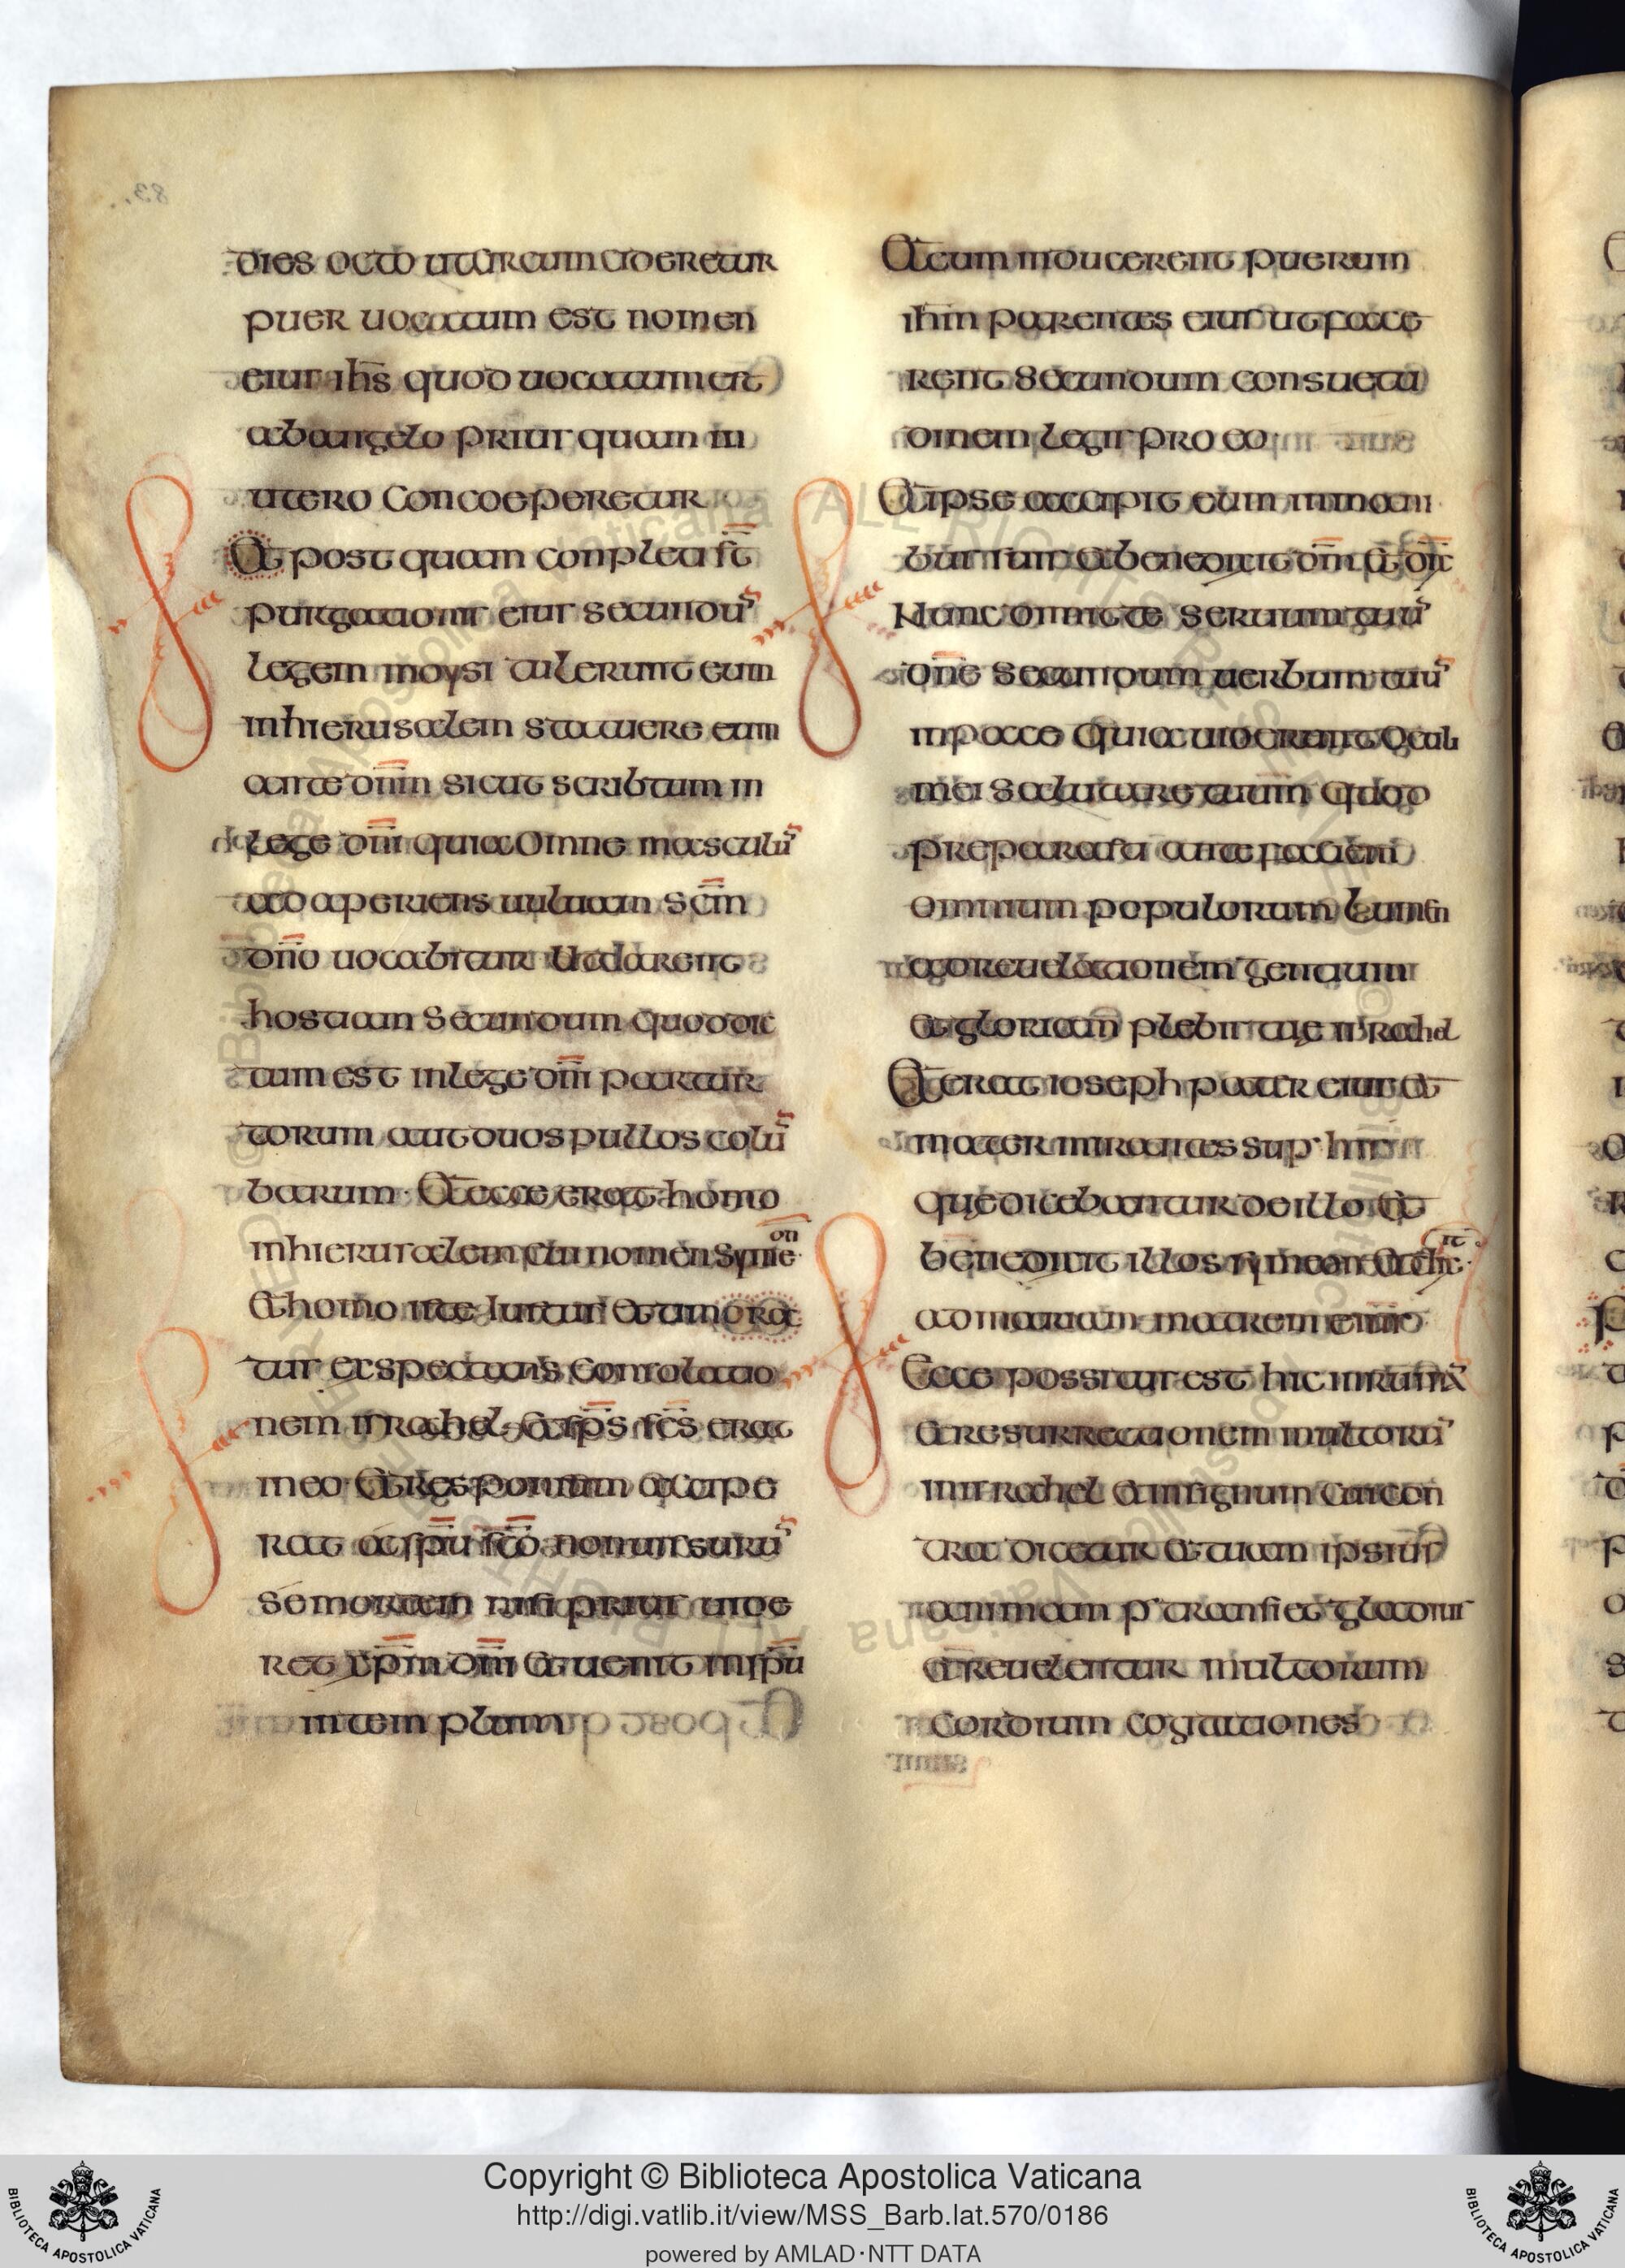 dies octo ut circumcideretur
puer uocatum est nomen
eius ihs quod uocatum est
ab angelo prius quam in
utero concoeperetur
Et post quam conpleti st̄
purgationis eius secundū
legem moysi tulerunt eum
inhierusalem statuere eum
ante dnm sicut scribtum in
lege dni quia omne masculū
adaperiens uuluam scm
dno uocabitur Ut darent
hostiam secundum quod dic
tum est inlege dni partur
torum aut duos pullos colū
barum· Et ecce erat homo
inhierusalem cui nomen Syme on
Et homo iste iustus et timora
tus exspectans consolatio
nem israhel et sps scs erat
in eo· Et responsum accipe
rat a spu sco non uissurū
se mortem nisi prius uide
ret xpm dni et uenit inspu
in templum
Et cum inducerent puerum
ihm parentes eius ut face
rent secundum consuetu
dinem legis pro eo
Et ipse accipit eum in mani
bus suis et benedixit dm et dix
Nunc dimitte seruum tuū
dne secundum uerbum tuū
inpace Quia uiderunt ocul
mei salutare tuum quod
preparasti ante faciem
omnium populorum Lumen
ad reuelationem gentium
et gloriam plebis tuę israhel
Et erat ioseph pater eius et
mater mirantes sup· his
quę dicebantur de illo et
benedixit illos symeon et dix it
ad mariam matrem eius
Ecce possitus est hic inruinā
et resurrectionem multorū
inisrahel et insignum cui con
tra dicetur et tuam ipsius
animam p· transiet gladius
et reuelentur multorum
cordium cogitationes
83.
Copyright © Biblioteca Apostolica Vaticana
http://digi.vatlib.it/view/MSS_Barb.lat.570/0186
powered by AMLAD·NTT DATA
BIBLIOTECA APOSTOLICA VATICANA
BIBLIOTECA APOSTOLICA VATICANA